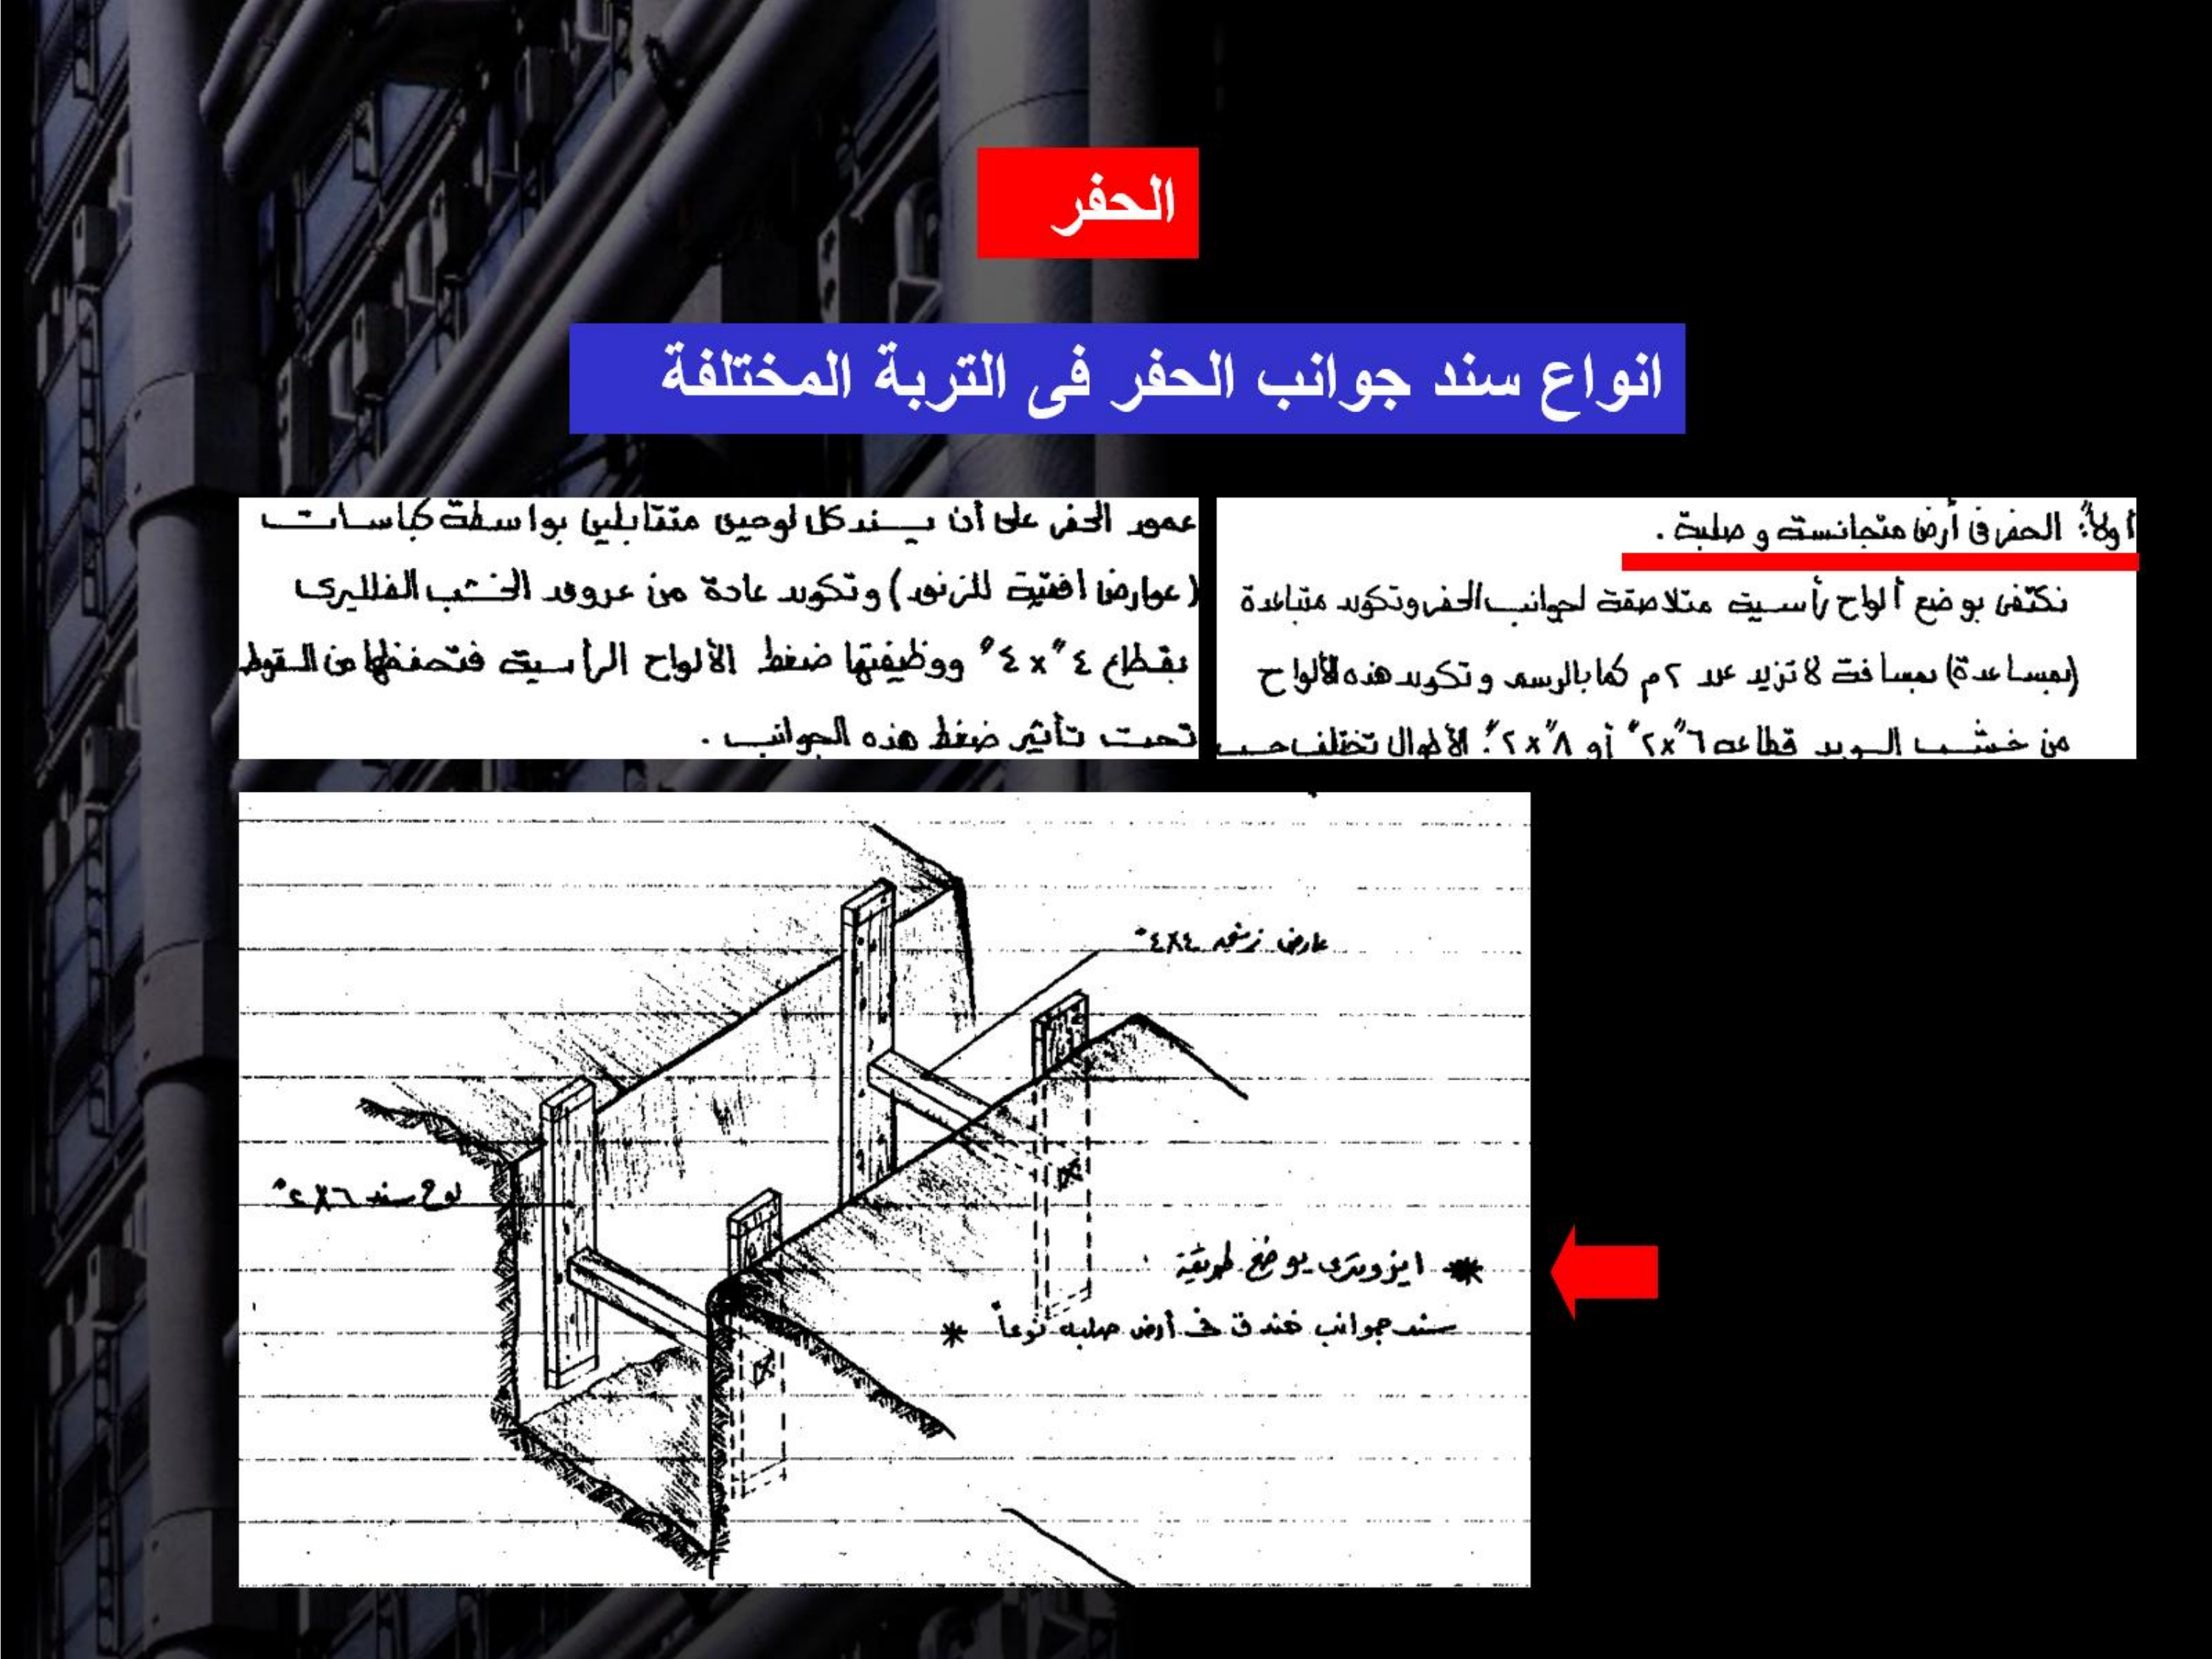 الحفر
انواع سند جوانب الحفر فى التربة المختلفة
أولاً: الحفر فى أرض متجانسة و صلبة .
نكتفى بوضع ألواح رأسية متلاصقة لجوانب الحفر وتكون متباعدة
(بمساعدة) بمسافة لا تزيد عن ٢م كما بالرسم وتكون هذه الألواح
من خشب السويد قطاعه ٦"x٢" أو ٨"x٢"؛ الأطوال تختلف حسب
عمق الحفر على أن يسند كل لوحين متقابلين بواسطة كباسات
(عوارض افقية للزنق) وتكون عادة من عروق الخشب الفلليرى
بقطاع ٤"x٤" ووظيفتها ضغط الألواح الرأسية فتحفظها من السقوط
تحت تأثير ضغط هذه الجوانب .
عارض زنق ٤x٤"
لوح سند ٦x٢"
* ايزومترى يوضح طريقة
سند جوانب خندق فى أرض صلبه نوعاً *